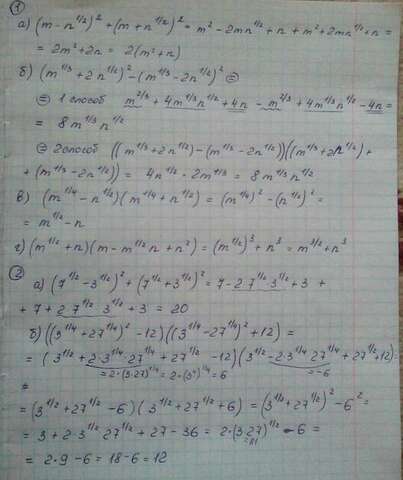 ①
а) (m - n^1/2)^2 + (m + n^1/2)^2 = m^2 - 2mn^1/2 + n + m^2 + 2mn^1/2 + n =
= 2m^2 + 2n = 2(m^2 + n)
б) (m^1/3 + 2n^1/2)^2 - (m^1/3 - 2n^1/2)^2 =
= 1 способ m^2/3 + 4m^1/3 n^1/2 + 4n - m^2/3 + 4m^1/3 n^1/2 - 4n =
= 8m^1/3 n^1/2
= 2 способ ((m^1/3 + 2n^1/2) - (m^1/3 - 2n^1/2))((m^1/3 + 2n^1/2) +
+ (m^1/3 - 2n^1/2)) = 4n^1/2 · 2m^1/3 = 8m^1/3 n^1/2
в) (m^1/4 - n^1/2)(m^1/4 + n^1/2) = (m^1/4)^2 - (n^1/2)^2 =
= m^1/2 - n
г) (m^1/2 + n)(m - m^1/2 n + n^2) = (m^1/2)^3 + n^3 = m^3/2 + n^3
②
а) (7^1/2 - 3^1/2)^2 + (7^1/2 + 3^1/2)^2 = 7 - 2·7^1/2·3^1/2 + 3 +
+ 7 + 2·7^1/2 3^1/2 + 3 = 20
б) ((3^1/4 + 27^1/4)^2 - 12)((3^1/4 - 27^1/4)^2 + 12) =
= (3^1/2 + 2·3^1/4·27^1/4 + 27^1/2 - 12)(3^1/2 - 2·3^1/4·27^1/4 + 27^1/2 + 12) =
= 2·(3·27)^1/4 = 2·(3^4)^1/4 = 6 = -6
=
= (3^1/2 + 27^1/2 - 6)(3^1/2 + 27^1/2 + 6) = (3^1/2 + 27^1/2)^2 - 6^2 =
= 3 + 2·3^1/2 27^1/2 + 27 - 36 = 2·(3·27)^1/2 - 6 =
= 81
= 2·9 - 6 = 18 - 6 = 12